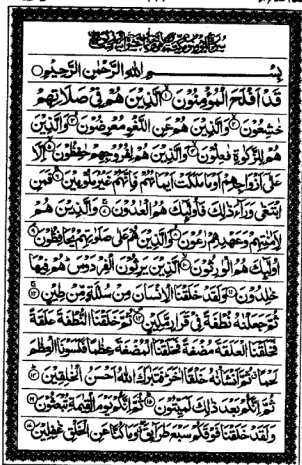 بِسْمِ اللهِ الرَّحْمٰنِ الرَّحِيْمِ
قَدْ اَفْلَحَ الْمُؤْمِنُوْنَ ۙ۱ الَّذِيْنَ هُمْ فِيْ صَلَاتِهِمْ
خٰشِعُوْنَ ۙ۲ وَالَّذِيْنَ هُمْ عَنِ اللَّغْوِ مُعْرِضُوْنَ ۙ۳ وَالَّذِيْنَ
هُمْ لِلزَّكٰوةِ فٰعِلُوْنَ ۙ۴ وَالَّذِيْنَ هُمْ لِفُرُوْجِهِمْ حٰفِظُوْنَ ۙ۵ اِلَّا
عَلٰٓى اَزْوَاجِهِمْ اَوْ مَا مَلَكَتْ اَيْمَانُهُمْ فَاِنَّهُمْ غَيْرُ مَلُوْمِيْنَ ۚ۶ فَمَنِ
ابْتَغٰى وَرَآءَ ذٰلِكَ فَاُولٰٓئِكَ هُمُ الْعٰدُوْنَ ۚ۷ وَالَّذِيْنَ هُمْ
لِاَمٰنٰتِهِمْ وَعَهْدِهِمْ رٰعُوْنَ ۙ۸ وَالَّذِيْنَ هُمْ عَلٰى صَلَوٰتِهِمْ يُحَافِظُوْنَ ۘ۹
اُولٰٓئِكَ هُمُ الْوٰرِثُوْنَ ۙ۱۰ الَّذِيْنَ يَرِثُوْنَ الْفِرْدَوْسَ هُمْ فِيْهَا
خٰلِدُوْنَ ۱۱ وَلَقَدْ خَلَقْنَا الْاِنْسَانَ مِنْ سُلٰلَةٍ مِّنْ طِيْنٍ ۚ۱۲
ثُمَّ جَعَلْنٰهُ نُطْفَةً فِيْ قَرَارٍ مَّكِيْنٍ ۪۱۳ ثُمَّ خَلَقْنَا النُّطْفَةَ عَلَقَةً
فَخَلَقْنَا الْعَلَقَةَ مُضْغَةً فَخَلَقْنَا الْمُضْغَةَ عِظٰمًا فَكَسَوْنَا الْعِظٰمَ
لَحْمًا ۗ ثُمَّ اَنْشَاْنٰهُ خَلْقًا اٰخَرَ ۭ فَتَبٰرَكَ اللهُ اَحْسَنُ الْخٰلِقِيْنَ ۭ۱۴
ثُمَّ اِنَّكُمْ بَعْدَ ذٰلِكَ لَمَيِّتُوْنَ ۭ۱۵ ثُمَّ اِنَّكُمْ يَوْمَ الْقِيٰمَةِ تُبْعَثُوْنَ ۱۶
وَلَقَدْ خَلَقْنَا فَوْقَكُمْ سَبْعَ طَرَآئِقَ ۖ وَمَا كُنَّا عَنِ الْخَلْقِ غٰفِلِيْنَ ۱۷